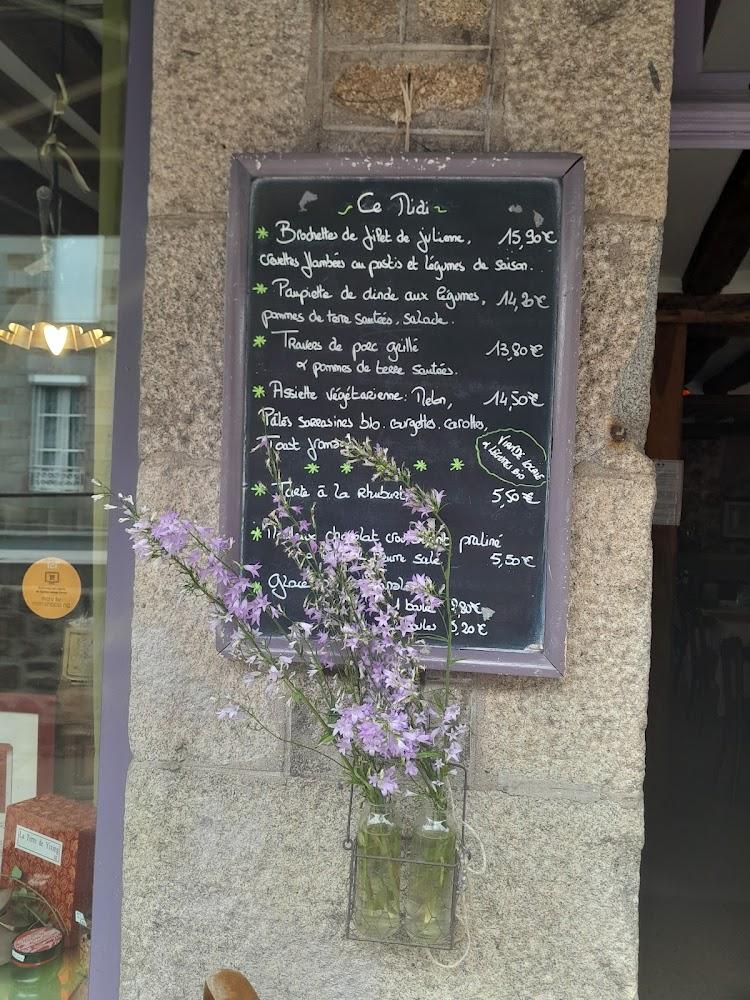 Ce Midi
* Brochettes de filet de julienne, 15,90€
crevettes flambées au pastis et légumes de saison.
* Paupiette de dinde aux légumes, 14,20€
pommes de terre sautées, salade.
* Travers de porc grillé 13,80€
& pommes de terre sautées.
* Assiette végétarienne: Melon, 14,50€
Pâtes sarrasines bio. courgettes, carottes,
Toast
VIANDE LOCALE
& LÉGUMES BIO
* Tarte à la Rhubarbe 5,50€
* chocolat praliné
salé 5,50€
* Glace
1 boule
boules
La Terre de